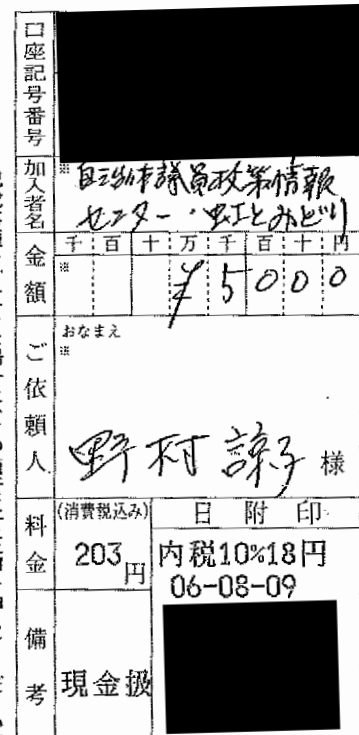 口座記号番号
加入者名
※
自治体議員政策情報
センター・虹とみどり
金額
千 百 十 万 千 百 十 円
※
¥5000
ご依頼人
おなまえ
※
野村 諒子 様
料金
(消費税込み)
203円
日附印
内税10%18円
06-08-09
備考
現金扱